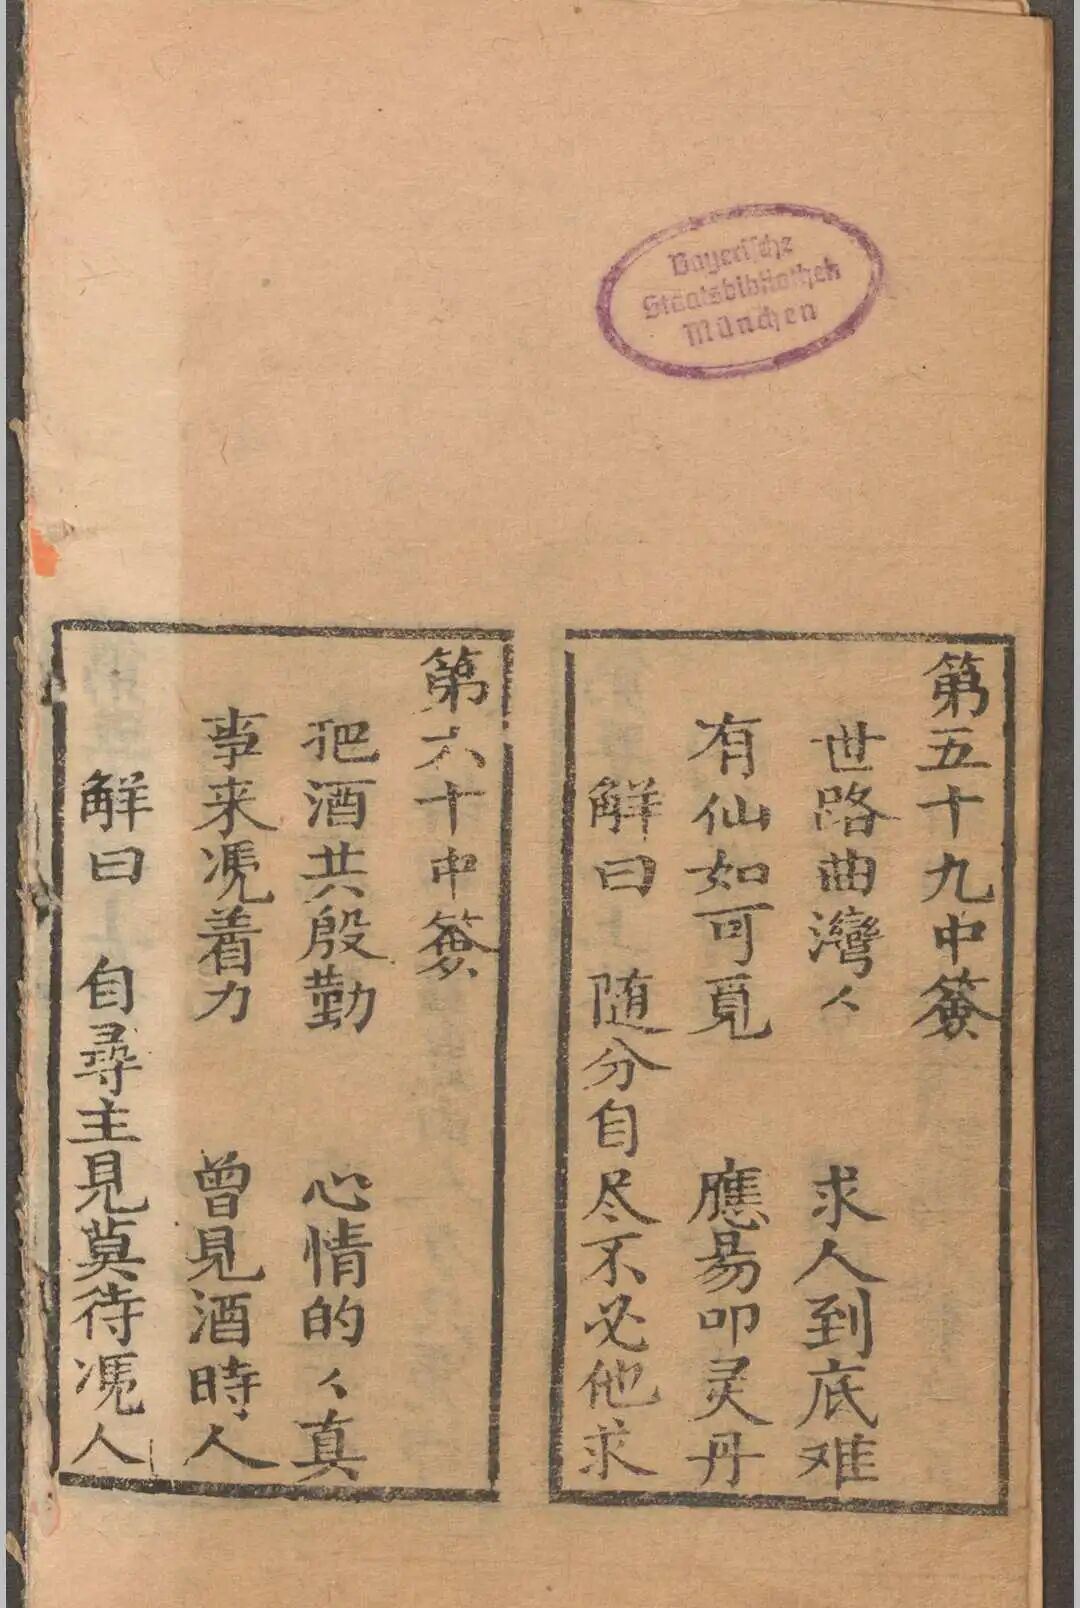 Bayerische
Staatsbibliothek
München
第五十九中簽
世路曲灣〻 求人到底难
有仙如可覓 應易叩灵丹
解曰 随分自尽不必他求
第六十中簽
把酒共殷勤 心情的〻真
事来凴着力 曾見酒時人
解曰 自尋主見莫待凴人